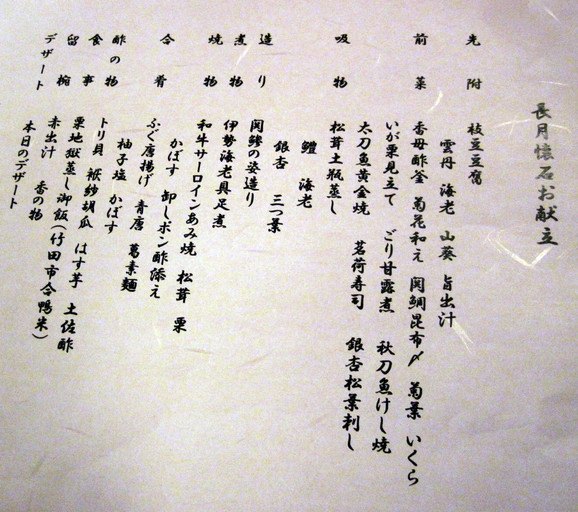 長月懐石お献立
先附 枝豆豆腐
雲丹 海老 山葵 旨出汁
前菜 香母酢釜 菊花和え 関鯛昆布〆 菊葉 いくら
いが栗見立て ごり甘露煮 秋刀魚けし焼
太刀魚黄金焼 茗荷寿司 銀杏松葉刺し
吸物 松茸土瓶蒸し
鱧 海老
銀杏 三つ葉
造り 関鯵の姿造り
煮物 伊勢海老具足煮
焼物 和牛サーロインあみ焼 松茸 栗
かぼす 卸しポン酢添え
合肴 ふぐ唐揚げ 青唐 葛素麺
柚子塩 かぼす
酢の物 トリ貝 袱紗胡瓜 はす芋 土佐酢
食事 栗地獄蒸し御飯(竹田市合鴨米)
留椀 赤出汁 香の物
デザート 本日のデザート